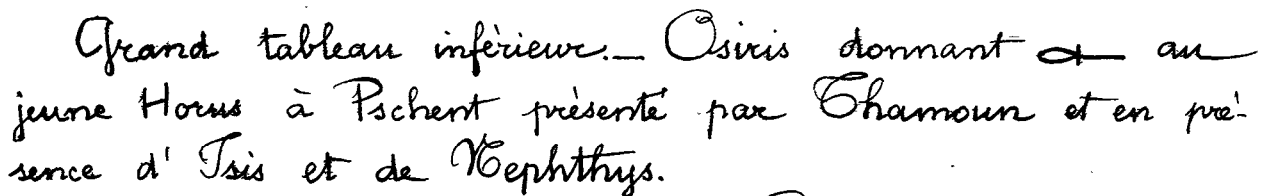 Grand tableau inférieur._ Osiris donnant au
jeune Horus à Pschent présenté par Thamoun et en pré-
sence d' Isis et de Nephthys.